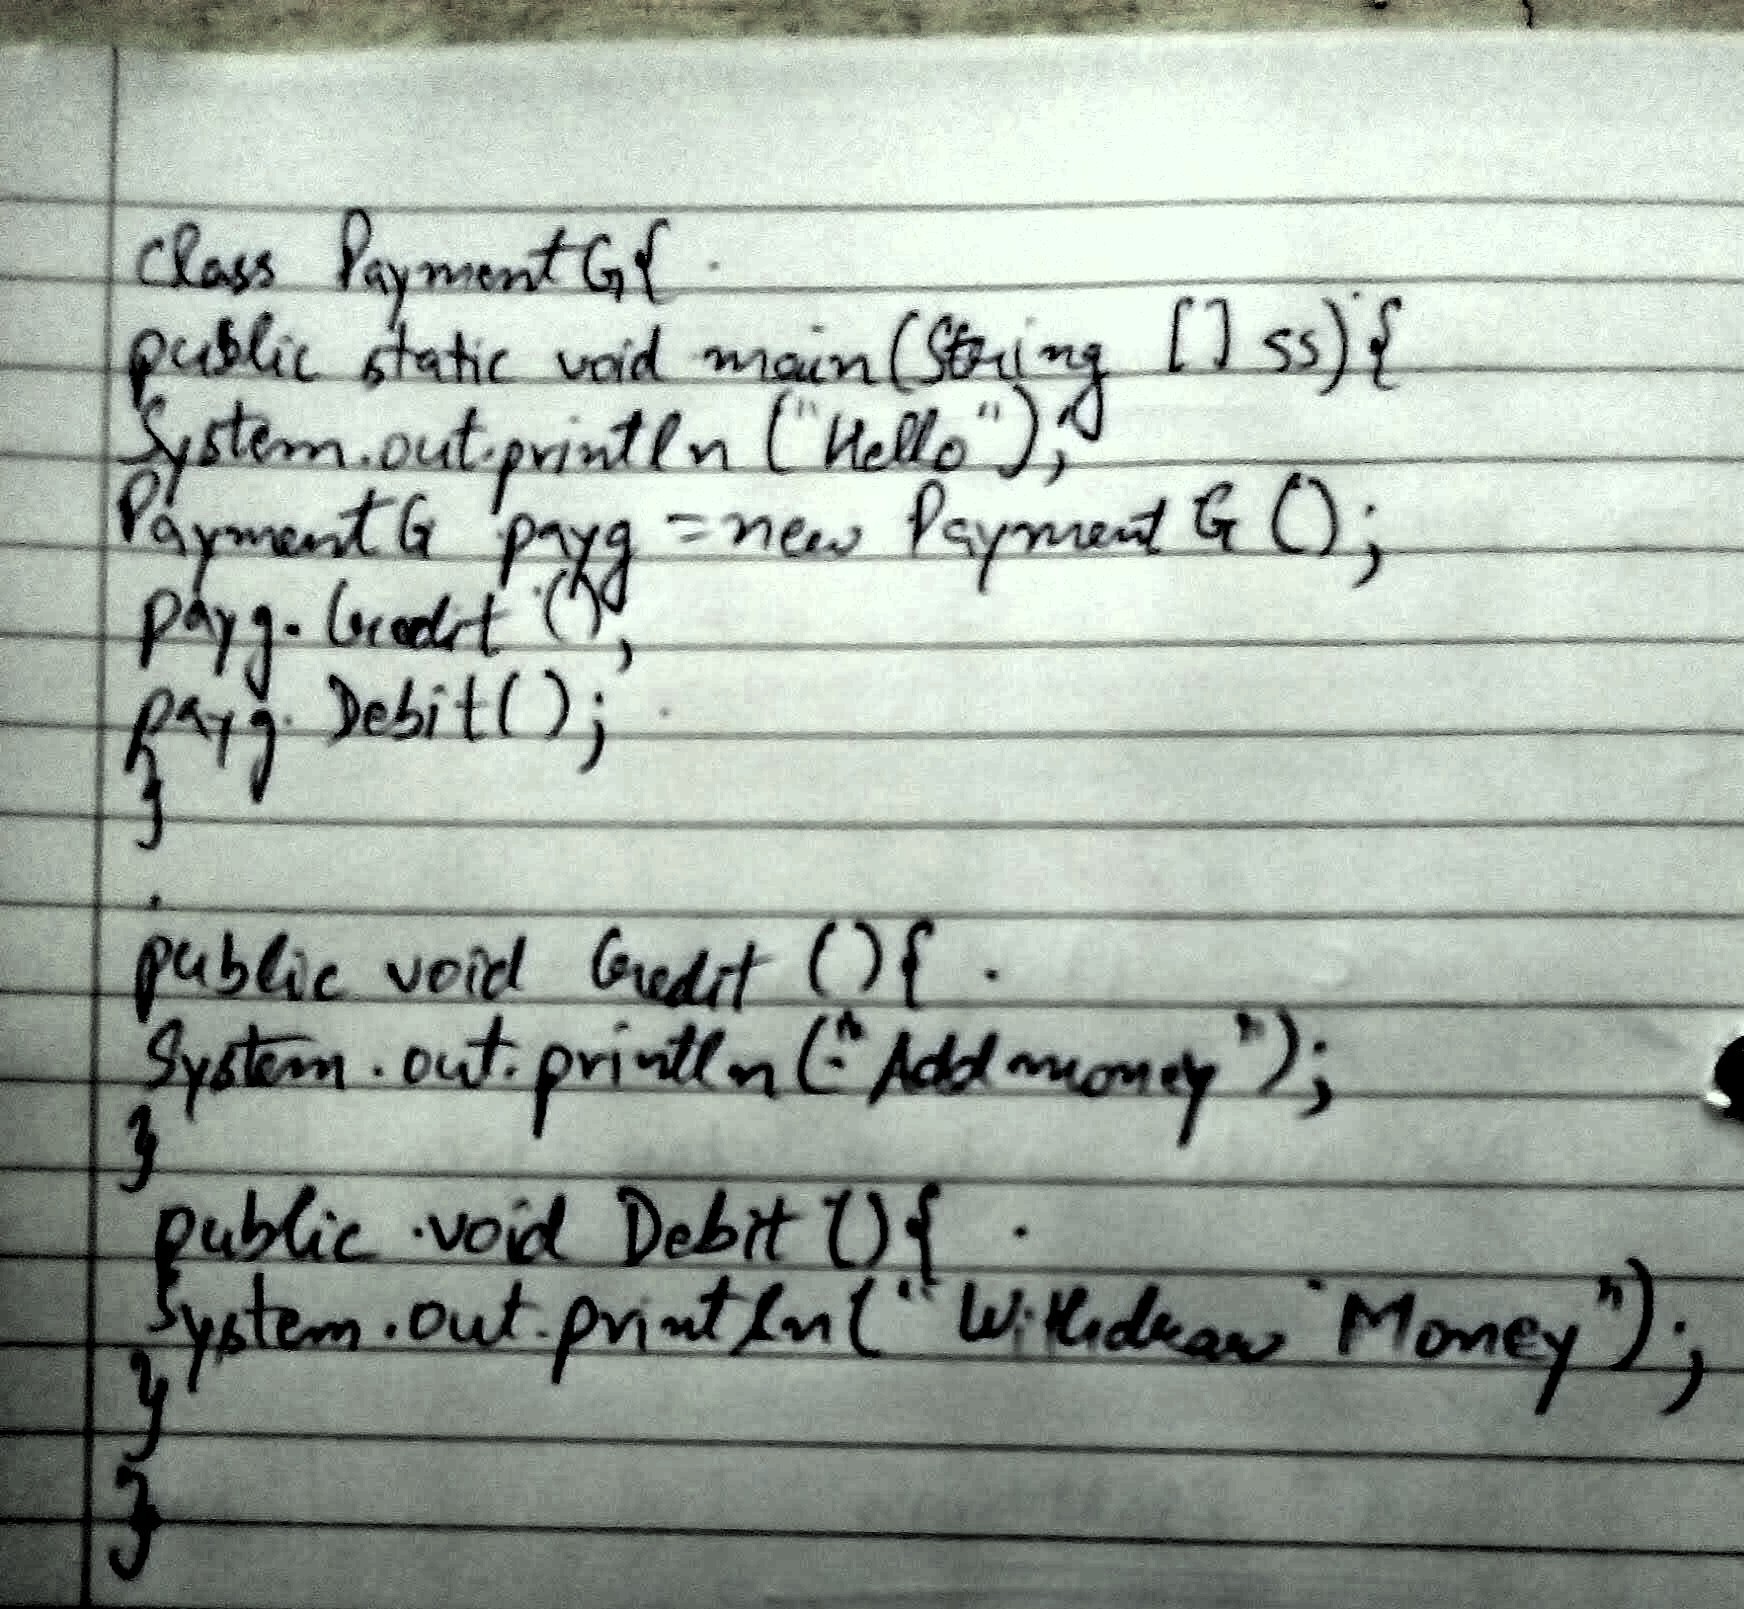 class PaymentG{
public static void main(String [] ss){
System.out.println ("Hello");
PaymentG payg = new PaymentG ();
payg. Credit ();
payg. Debit();
}
public void Credit (){
System.out.println ("Add money");
}
public void Debit (){
System.out.println("Withdraw Money");
}
}